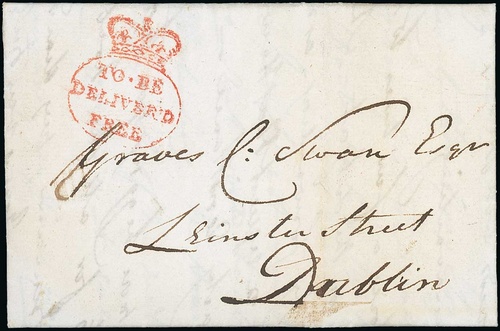 TO·BE
DELIVER'D
FREE
Graves C: Swan Esqr
Leinster Street
Dublin